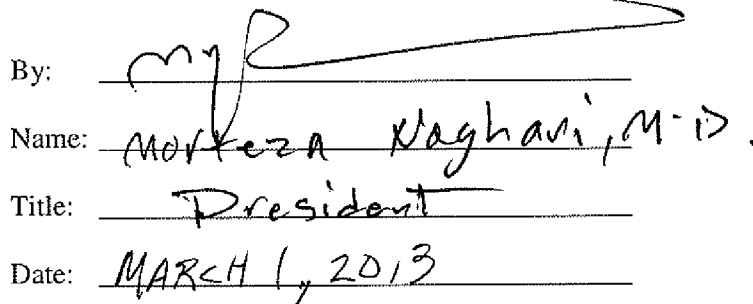 By:
Name: Morteza Naghavi, M.D.
Title: President
Date: MARCH 1, 2013